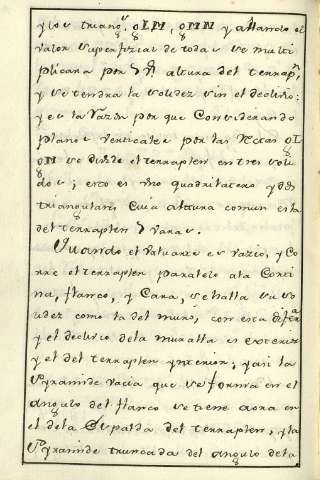 y los triang.s 8LM, 8MN y allando el
valor superfizial de todas se multi
plicara por altura del terrapn,
y se tendra la solidez sin el declivio:
y es la Razon por que Considerando
planos Verticales por las Rectas 8L
8M se divide el terraplen en tres soli
dos; esto es Uno quadrilatero y dos
triangulares Cuia altura comun es la
del terraplen 3 varas.
Quando el valuarte es vazio, y Co
rre el terraplen paralelo ala Corti
na, flanco, y Cara, se halla su so
lidez como la del muro, con esta difera
y el declivio dela muralla es exterior
y el del terraplen ynterior; y asi la
Pyramide vacia que se forma en el
angulo del flanco se tiene aora en
el dela Espalda del terraplen, y la
Pyramide truncada del angulo dela